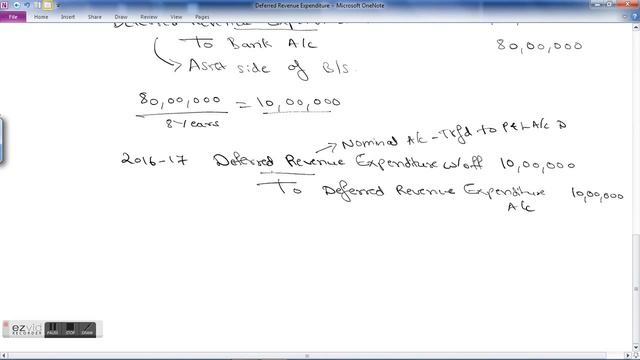 Deferred Revenue Expenditure - Microsoft OneNote
File Home Insert Share Draw Review View
To Bank A/c 80,00,000
Asset side of B/s.
80,00,000 = 10,00,000
8 Years
Nominal A/c - Trfd to P & L A/c D
2016-17 Deferred Revenue Expenditure w/off 10,00,000
To Deferred Revenue Expenditure 10,00,000
A/c
ezvid
RECORDER
PAUSE STOP DRAW